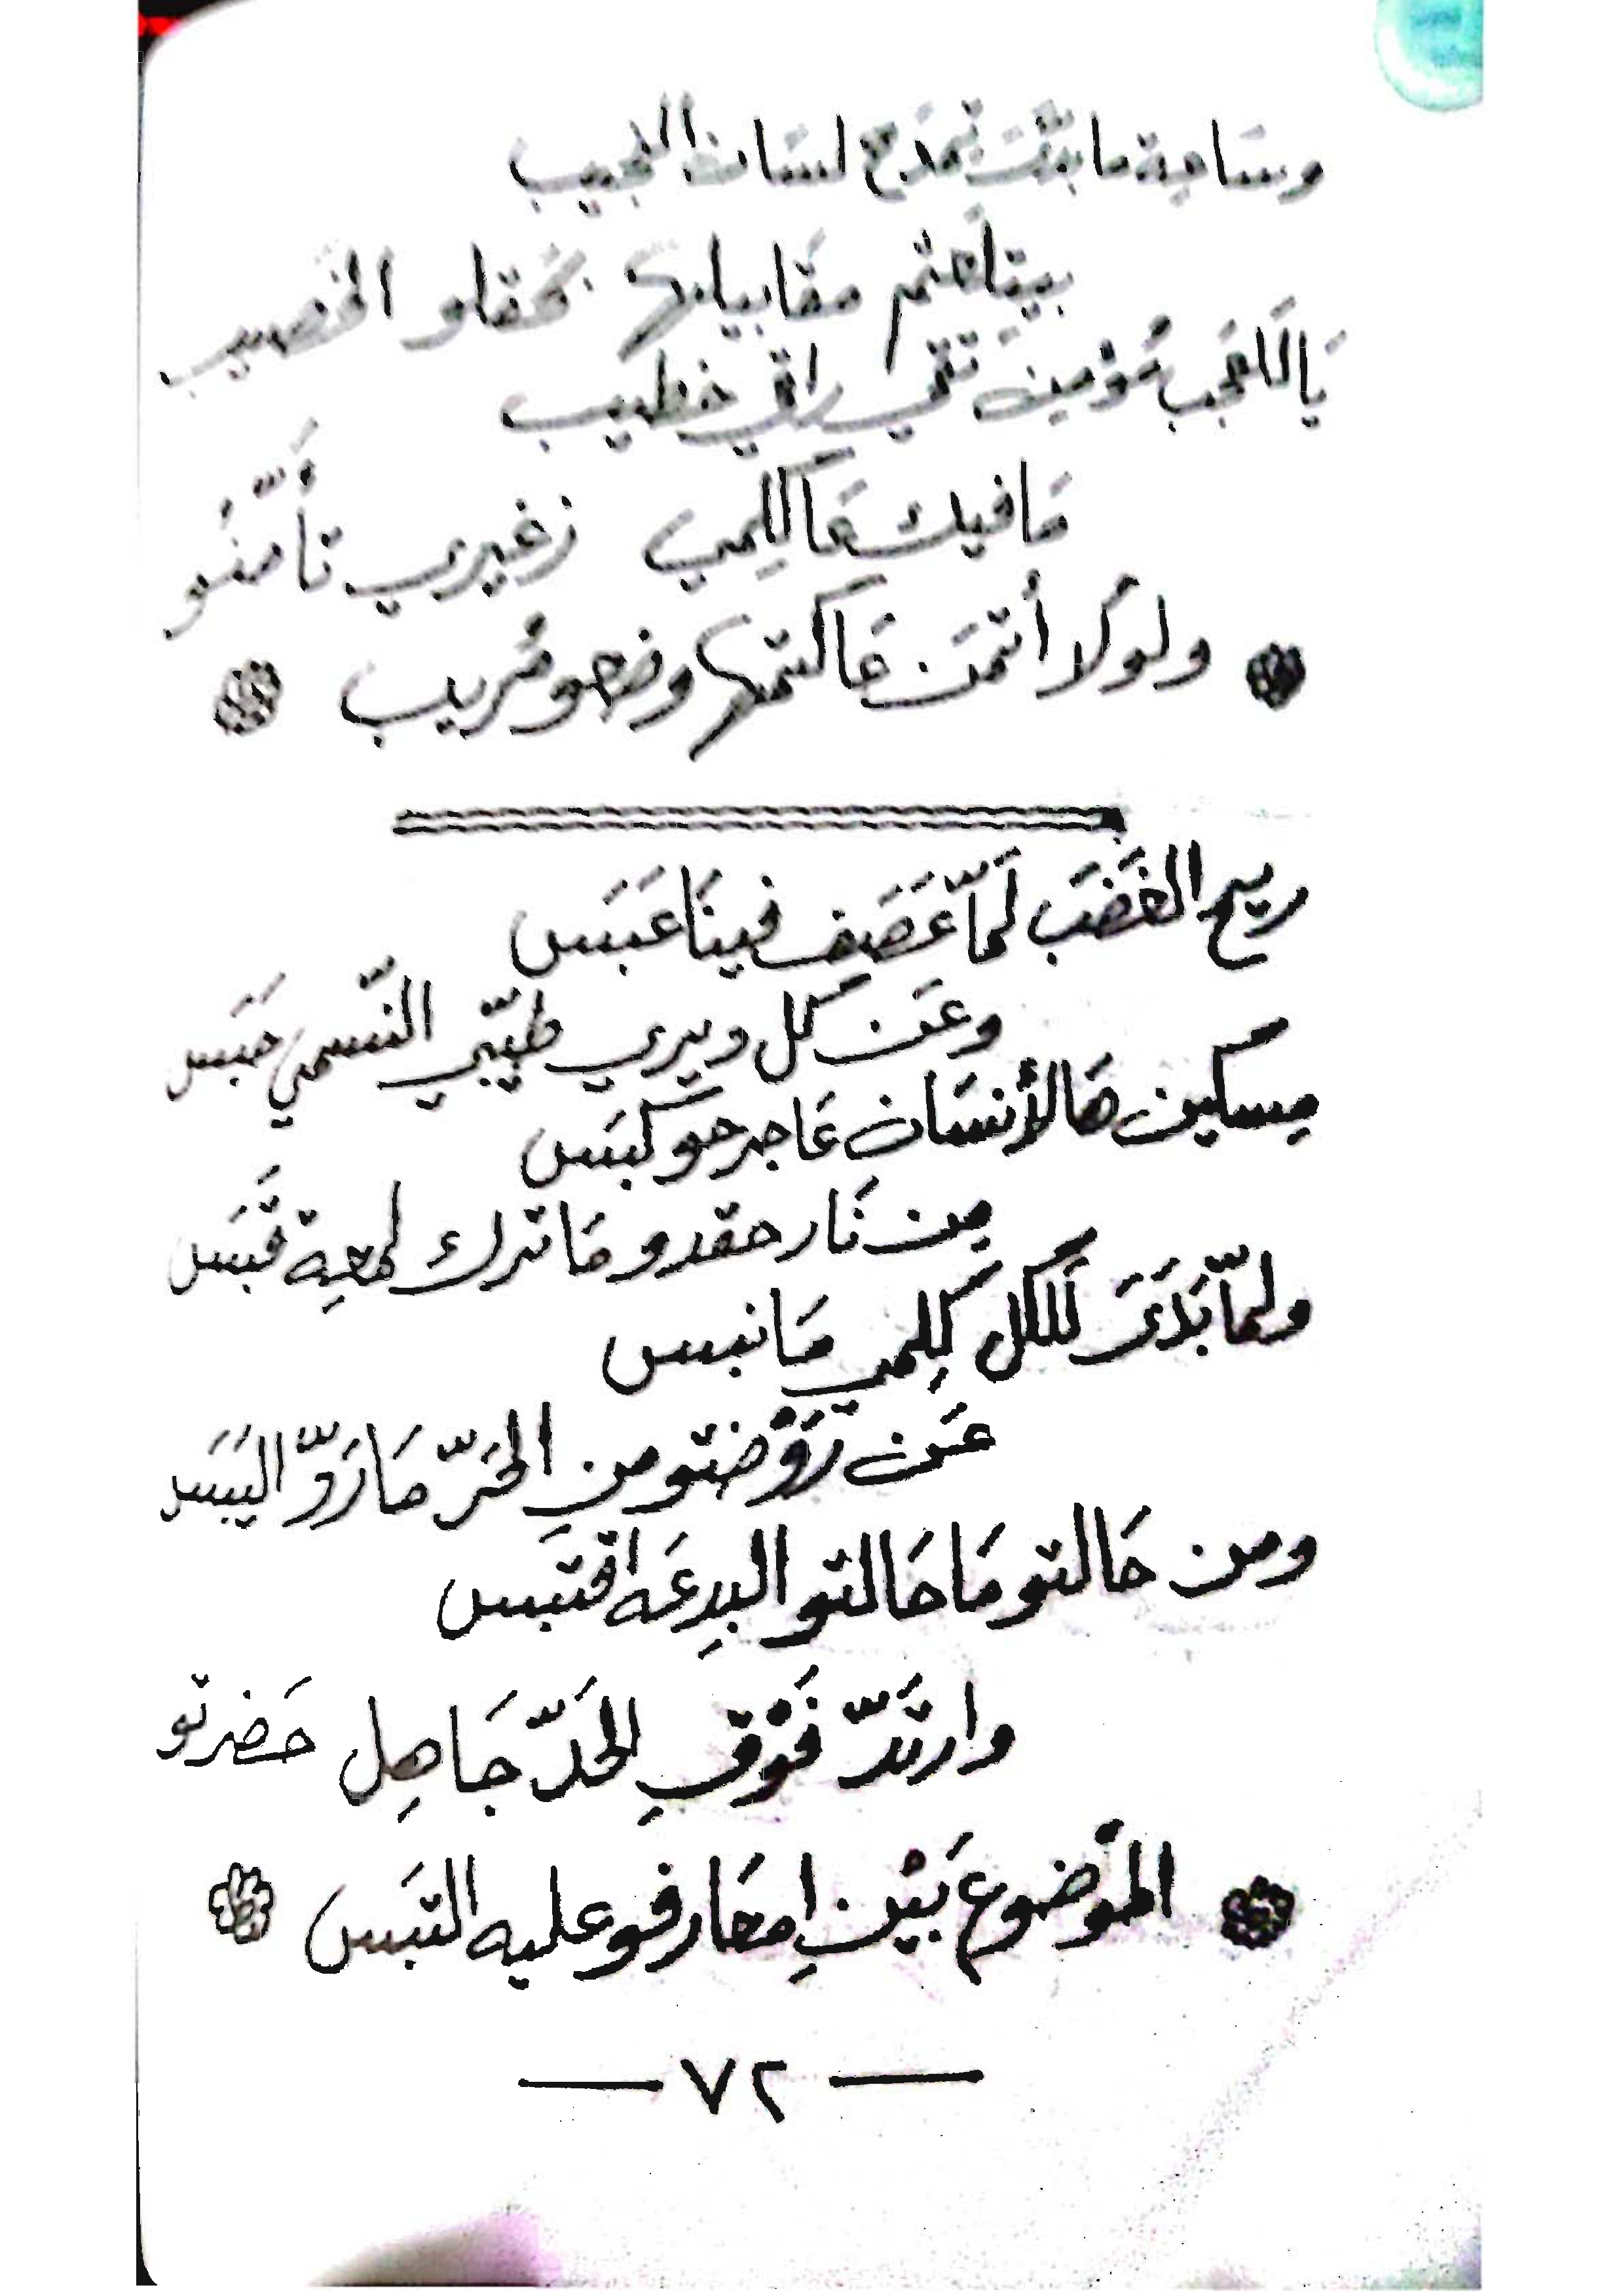 وسَاعِة ما بتمدح لسَان المجيب
بحقلو الخصيب
يَا لَلعَجب مُؤمِنِة تقي راقي خطيب
مَا فيك عَا كِلمي زغيري تأَمّنُو
ولولَا أتمن عَا كتمها وضعو مُريب
ريح الغَضَب لَمّا عَصَف فينَا عَبَس
وعَن كل ديري طيّبي النّسمي حَبَس
مِسكين هَالأنسَان عَاجرحو كبَس
مِن نَار حقدو مَا ترك لمعِة قَبَس
ولمّا بَدَى لَلكل كِلمي مَا نبس
عَن رَوْضتو من الحَرّ مَا رَوّ اليَبَس
ومن حَالتو مَا حَالتو البِدعَه اقتبَس
وارتَدّ فَوْقِ الحَدّ جَاهِل حَضرتو
الموْضوع بَيْن اِمعَارفو عليه التبَس
— ٧٢ —